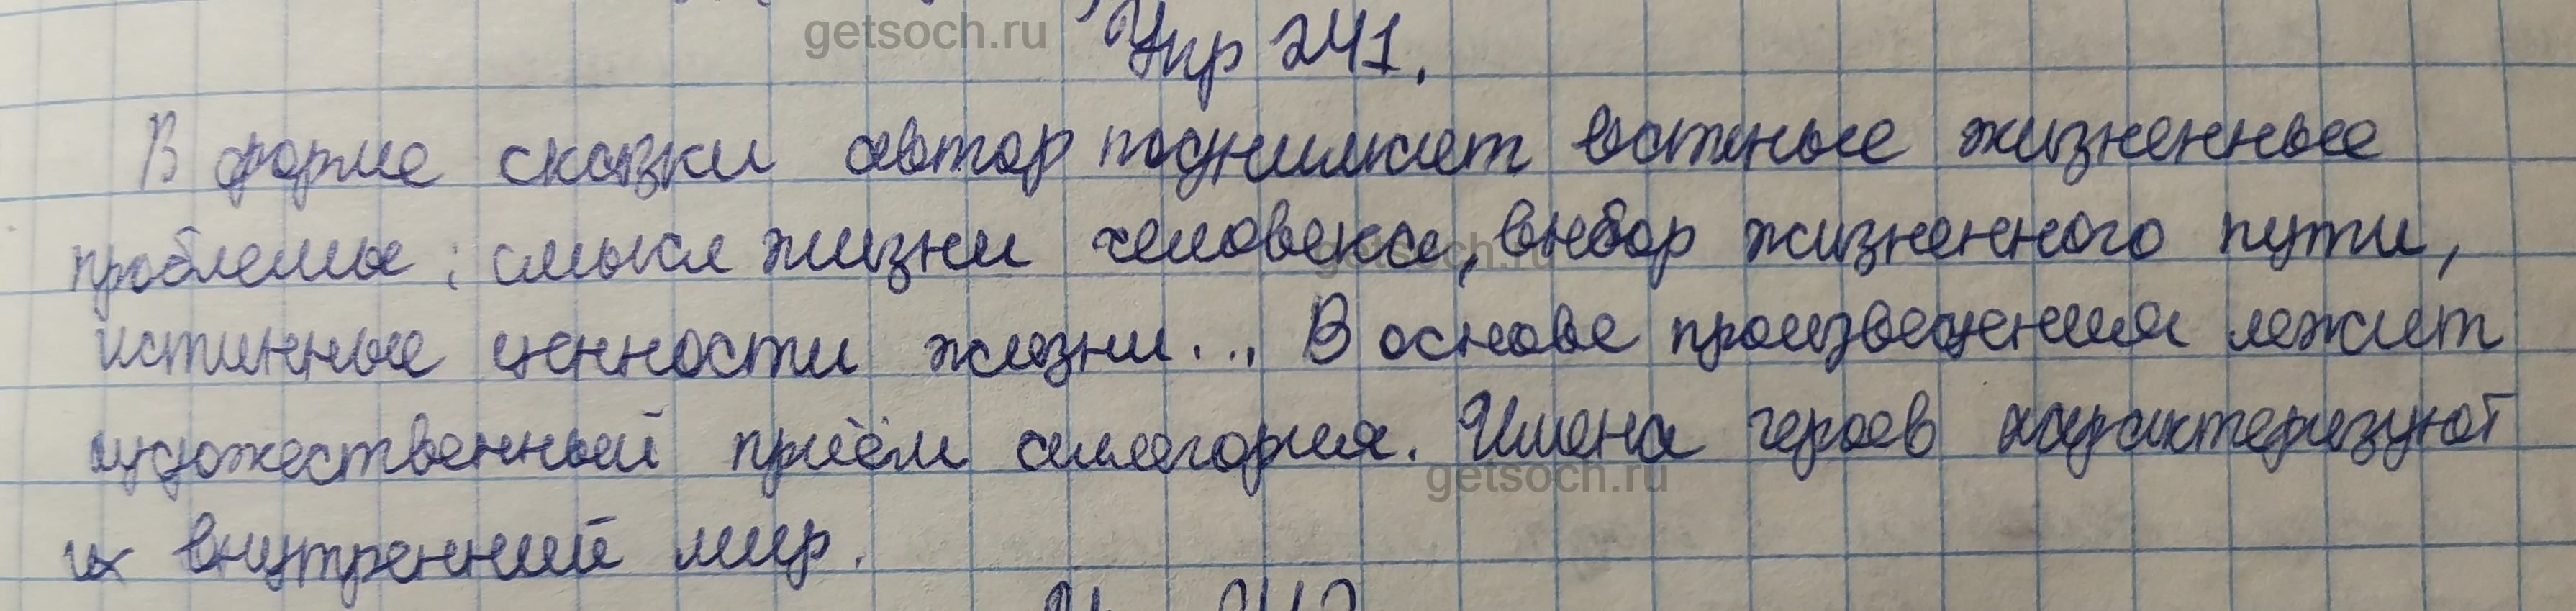 Упр 241.
В форме сказки автор поднимает важные жизненные
проблемы: смысл жизни человека, выбор жизненного пути,
истинные ценности жизни... В основе произведения лежит
художественный приём аллегория. Имена героев характеризуют
их внутренний мир.
getsoch.ru
getsoch.ru
getsoch.ru